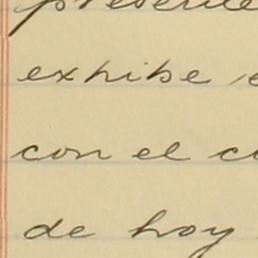 presente
exhibe
con el
de hoy